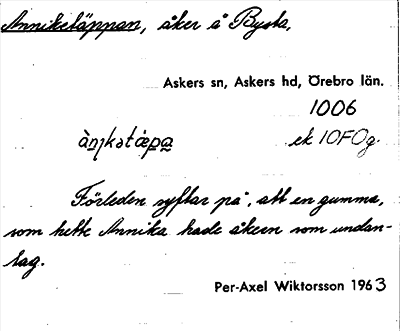 Annikatäppan, åker å Bysta,
Askers sn, Askers hd, Örebro län.
1006
ànı̣kətæ̀pa ek 10F0g.
Förleden syftar på, att en gumma,
som hette Annika hade åkern som undan-
tag.
Per-Axel Wiktorsson 1963